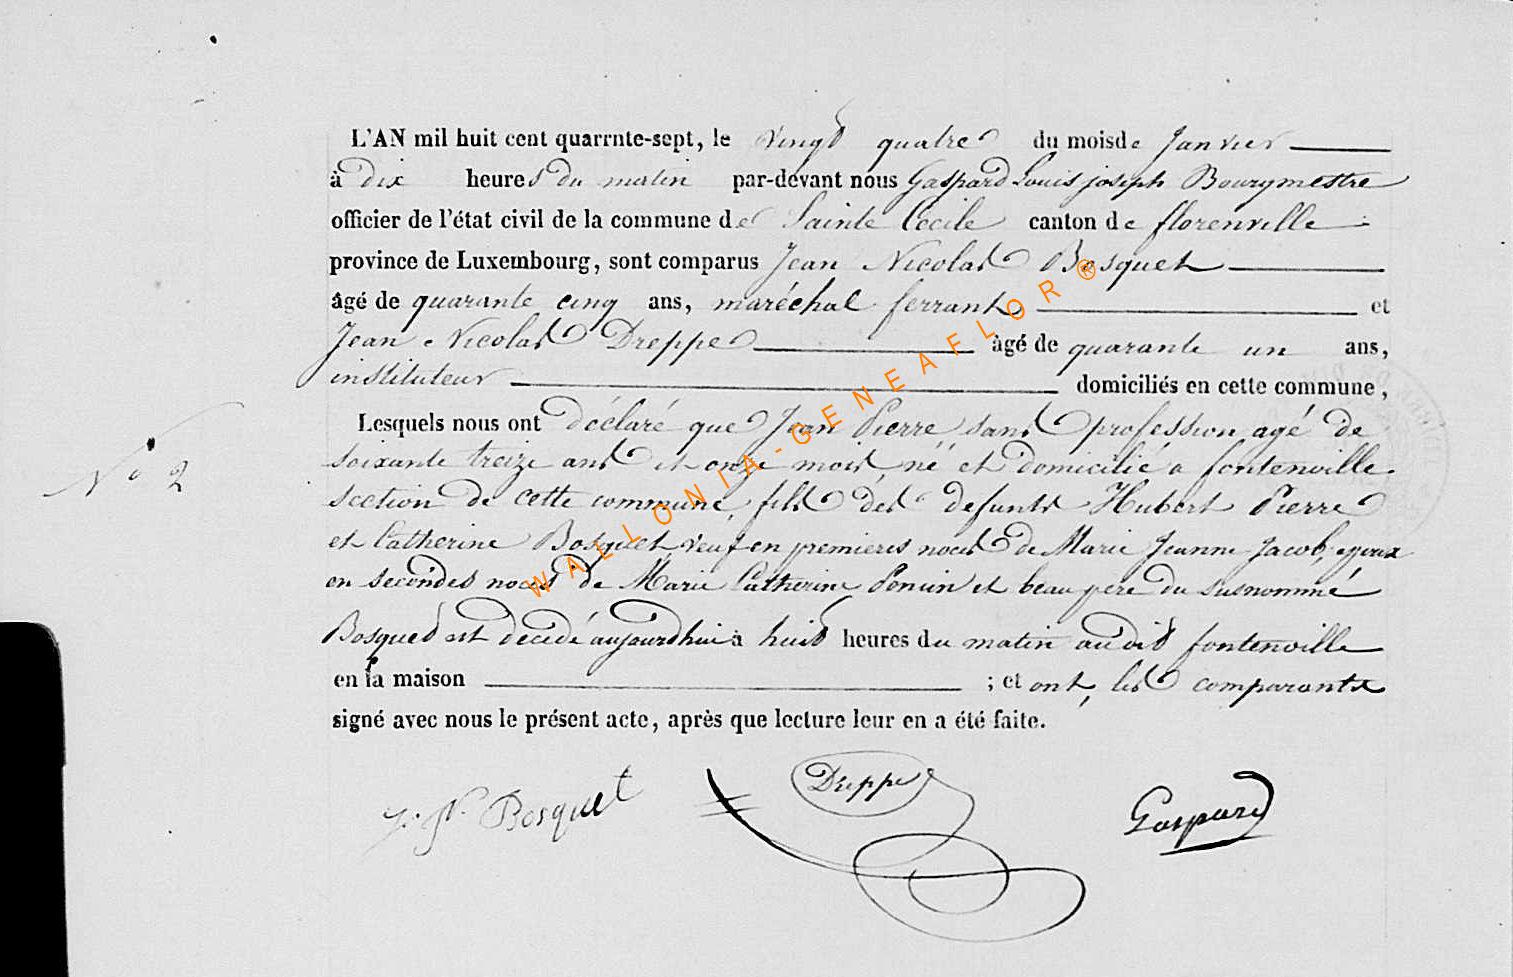 L'AN mil huit cent quarrnte-sept, le vingt quatre du moisde Janvier
à dix heures du matin par-devant nous Gaspard Louis joseph Bourgmestre
officier de l'état civil de la commune de Sainte Cecile canton de florenville
province de Luxembourg, sont comparus Jean Nicolas Bosquet
âgé de quarante cinq ans, maréchal ferrant et
Jean Nicolas Dreppe àgé de quarante un ans,
instituteur domiciliés en cette commune,
Lesquels nous ont déclaré que Jean Pierre sans profession agé de
soixante treize ans et onze mois, né et domicilié a fontenoille
N° 2
section de cette commune, fils des defunts Hubert Pierre
et Catherine Bosquet veuf en premieres noces de Marie Jeanne Jacob, epoux
en secondes noces de Marie Catherine et beau pere du susnommé
Bosquet est décédé aujourdhui à huit heures du matin audit fontenoille
en sa maison ; et ont, les comparants
signé avec nous le présent acte, après que lecture leur en a été faite.
J. N. Bosquet Dreppe Gaspard
WALLONIA-GENEAFLOR ®